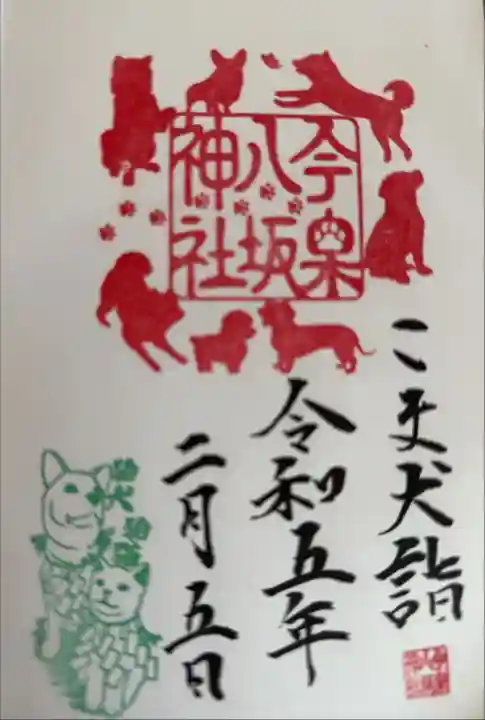 今泉
八坂
神社
こま犬詣
令和五年
二月五日